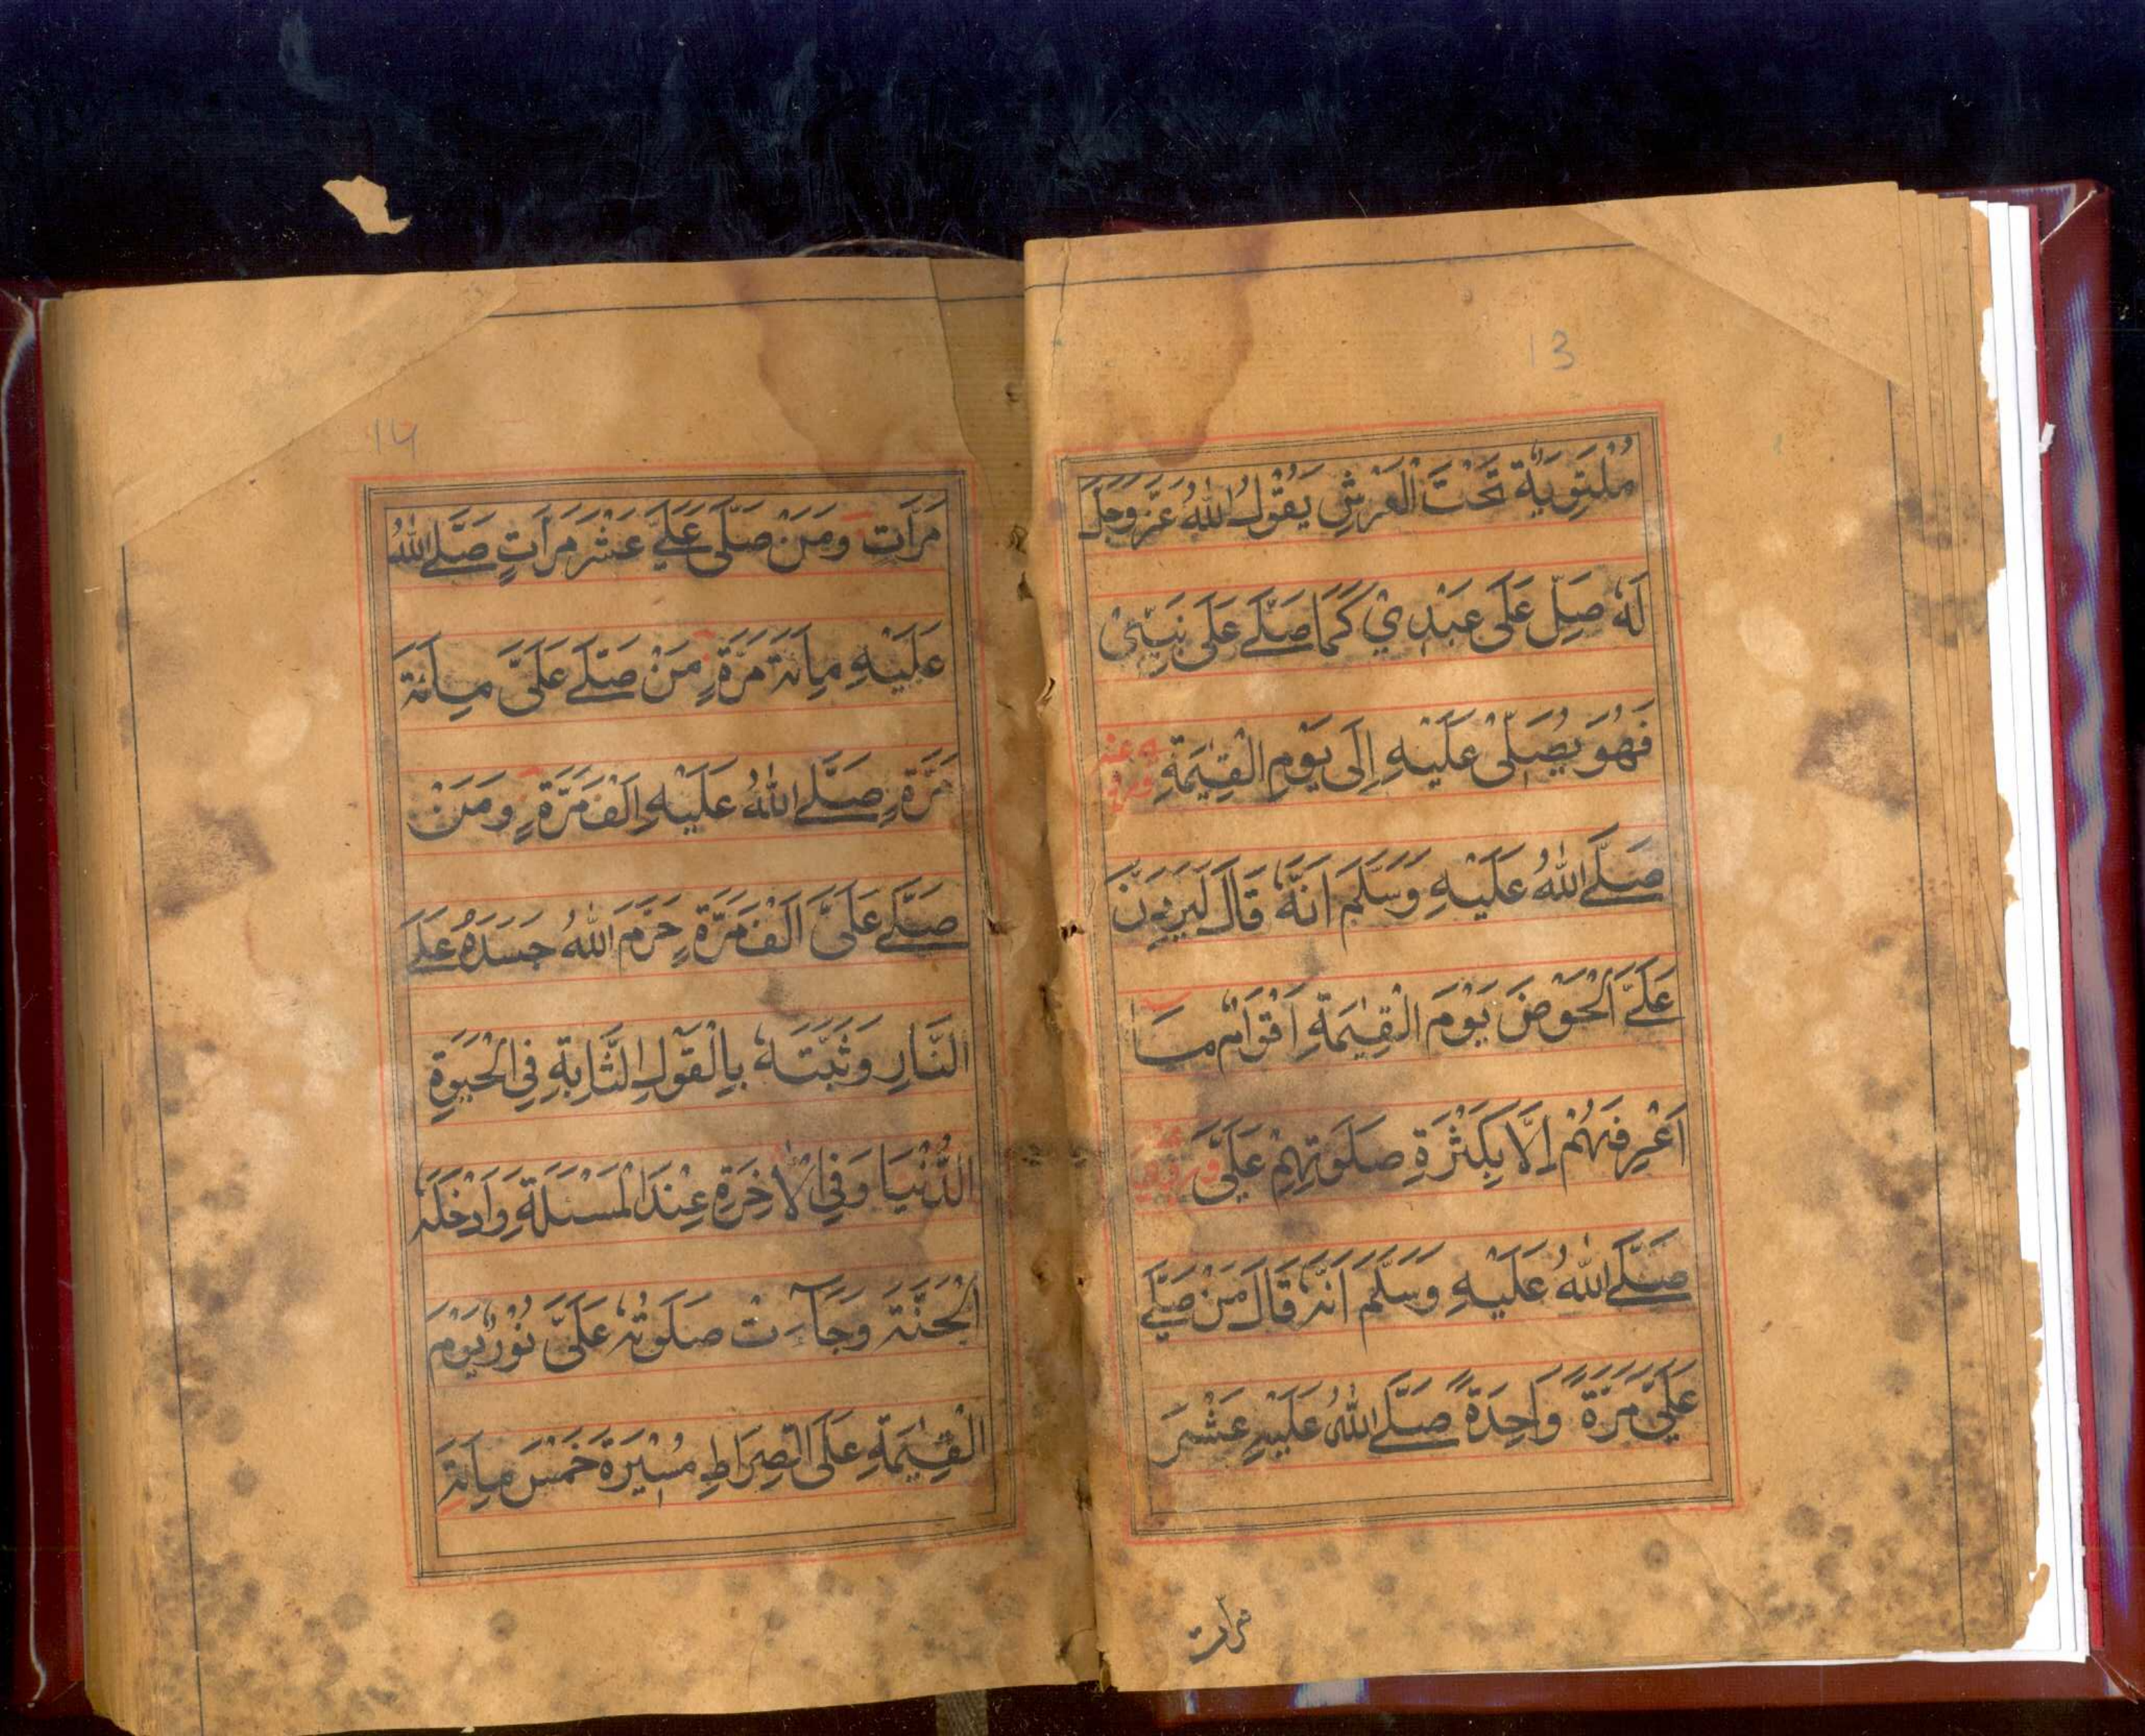 13
مُلْتَوِيَةٌ تَحْتَ الْعَرْشِ يَقُوْلُ اللّٰهُ عَزَّ وَجَلَّ
لَهٗ صَلِّ عَلٰى عَبْدِيْ كَمَا صَلّٰے عَلٰى نَبِيِّيْ
فَهُوَ يُصَلِّيْ عَلَيْهِ اِلٰى يَوْمِ الْقِيٰمَةِ
صَلَّے اللّٰهُ عَلَيْهِ وَسَلَّمَ اَنَّهٗ قَالَ لَيَرِدَنَّ
عَلَيَّ الْحَوْضَ يَوْمَ الْقِيٰمَةِ اَقْوَامٌ مَا
اَعْرِفُهُمْ اِلَّا بِكَثْرَةِ صَلٰوتِهِمْ عَلَيَّ
صَلَّے اللّٰهُ عَلَيْهِ وَسَلَّمَ اَنَّهٗ قَالَ مَنْ صَلّٰے
عَلَيَّ مَرَّةً وَاحِدَةً صَلَّے اللّٰهُ عَلَيْهِ عَشْرَ
مرات
14
مَرَّاتٍ وَمَنْ صَلّٰى عَلَيَّ عَشْرَ مَرَّاتٍ صَلَّے اللّٰهُ
عَلَيْهِ مِائَةَ مَرَّةٍ مَنْ صَلّٰے عَلَيَّ مِائَةَ
مَرَّةٍ صَلَّے اللّٰهُ عَلَيْهِ اَلْفَ مَرَّةٍ وَمَنْ
صَلّٰے عَلَيَّ اَلْفَ مَرَّةٍ حَرَّمَ اللّٰهُ جَسَدَهٗ عَلَے
النَّارِ وَثَبَّتَهٗ بِالْقَوْلِ الثَّابِةِ فِي الْحَيٰوةِ
الدُّنْيَا وَفِي الْاٰخِرَةِ عِنْدَ الْمَسْئَلَةِ وَاَدْخَلَهُ
الْجَنَّةَ وَجَآءَتْ صَلٰوتُهٗ عَلَيَّ نُوْرٌ يَوْمَ
الْقِيٰمَةِ عَلَى الصِّرَاطِ مَسِيْرَةَ خَمْسَ مِائَةِ